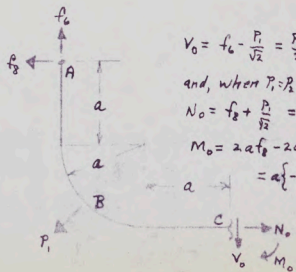 f₆
f₈
A
a
a
a
B
P₁
C
N₀
V₀
M₀
V₀ = f₆ - P₁/√2 = P
and, when P₁=P₂
N₀ = f₈ + P₁/√2 =
M₀ = 2af₈ - 2a
= a{-